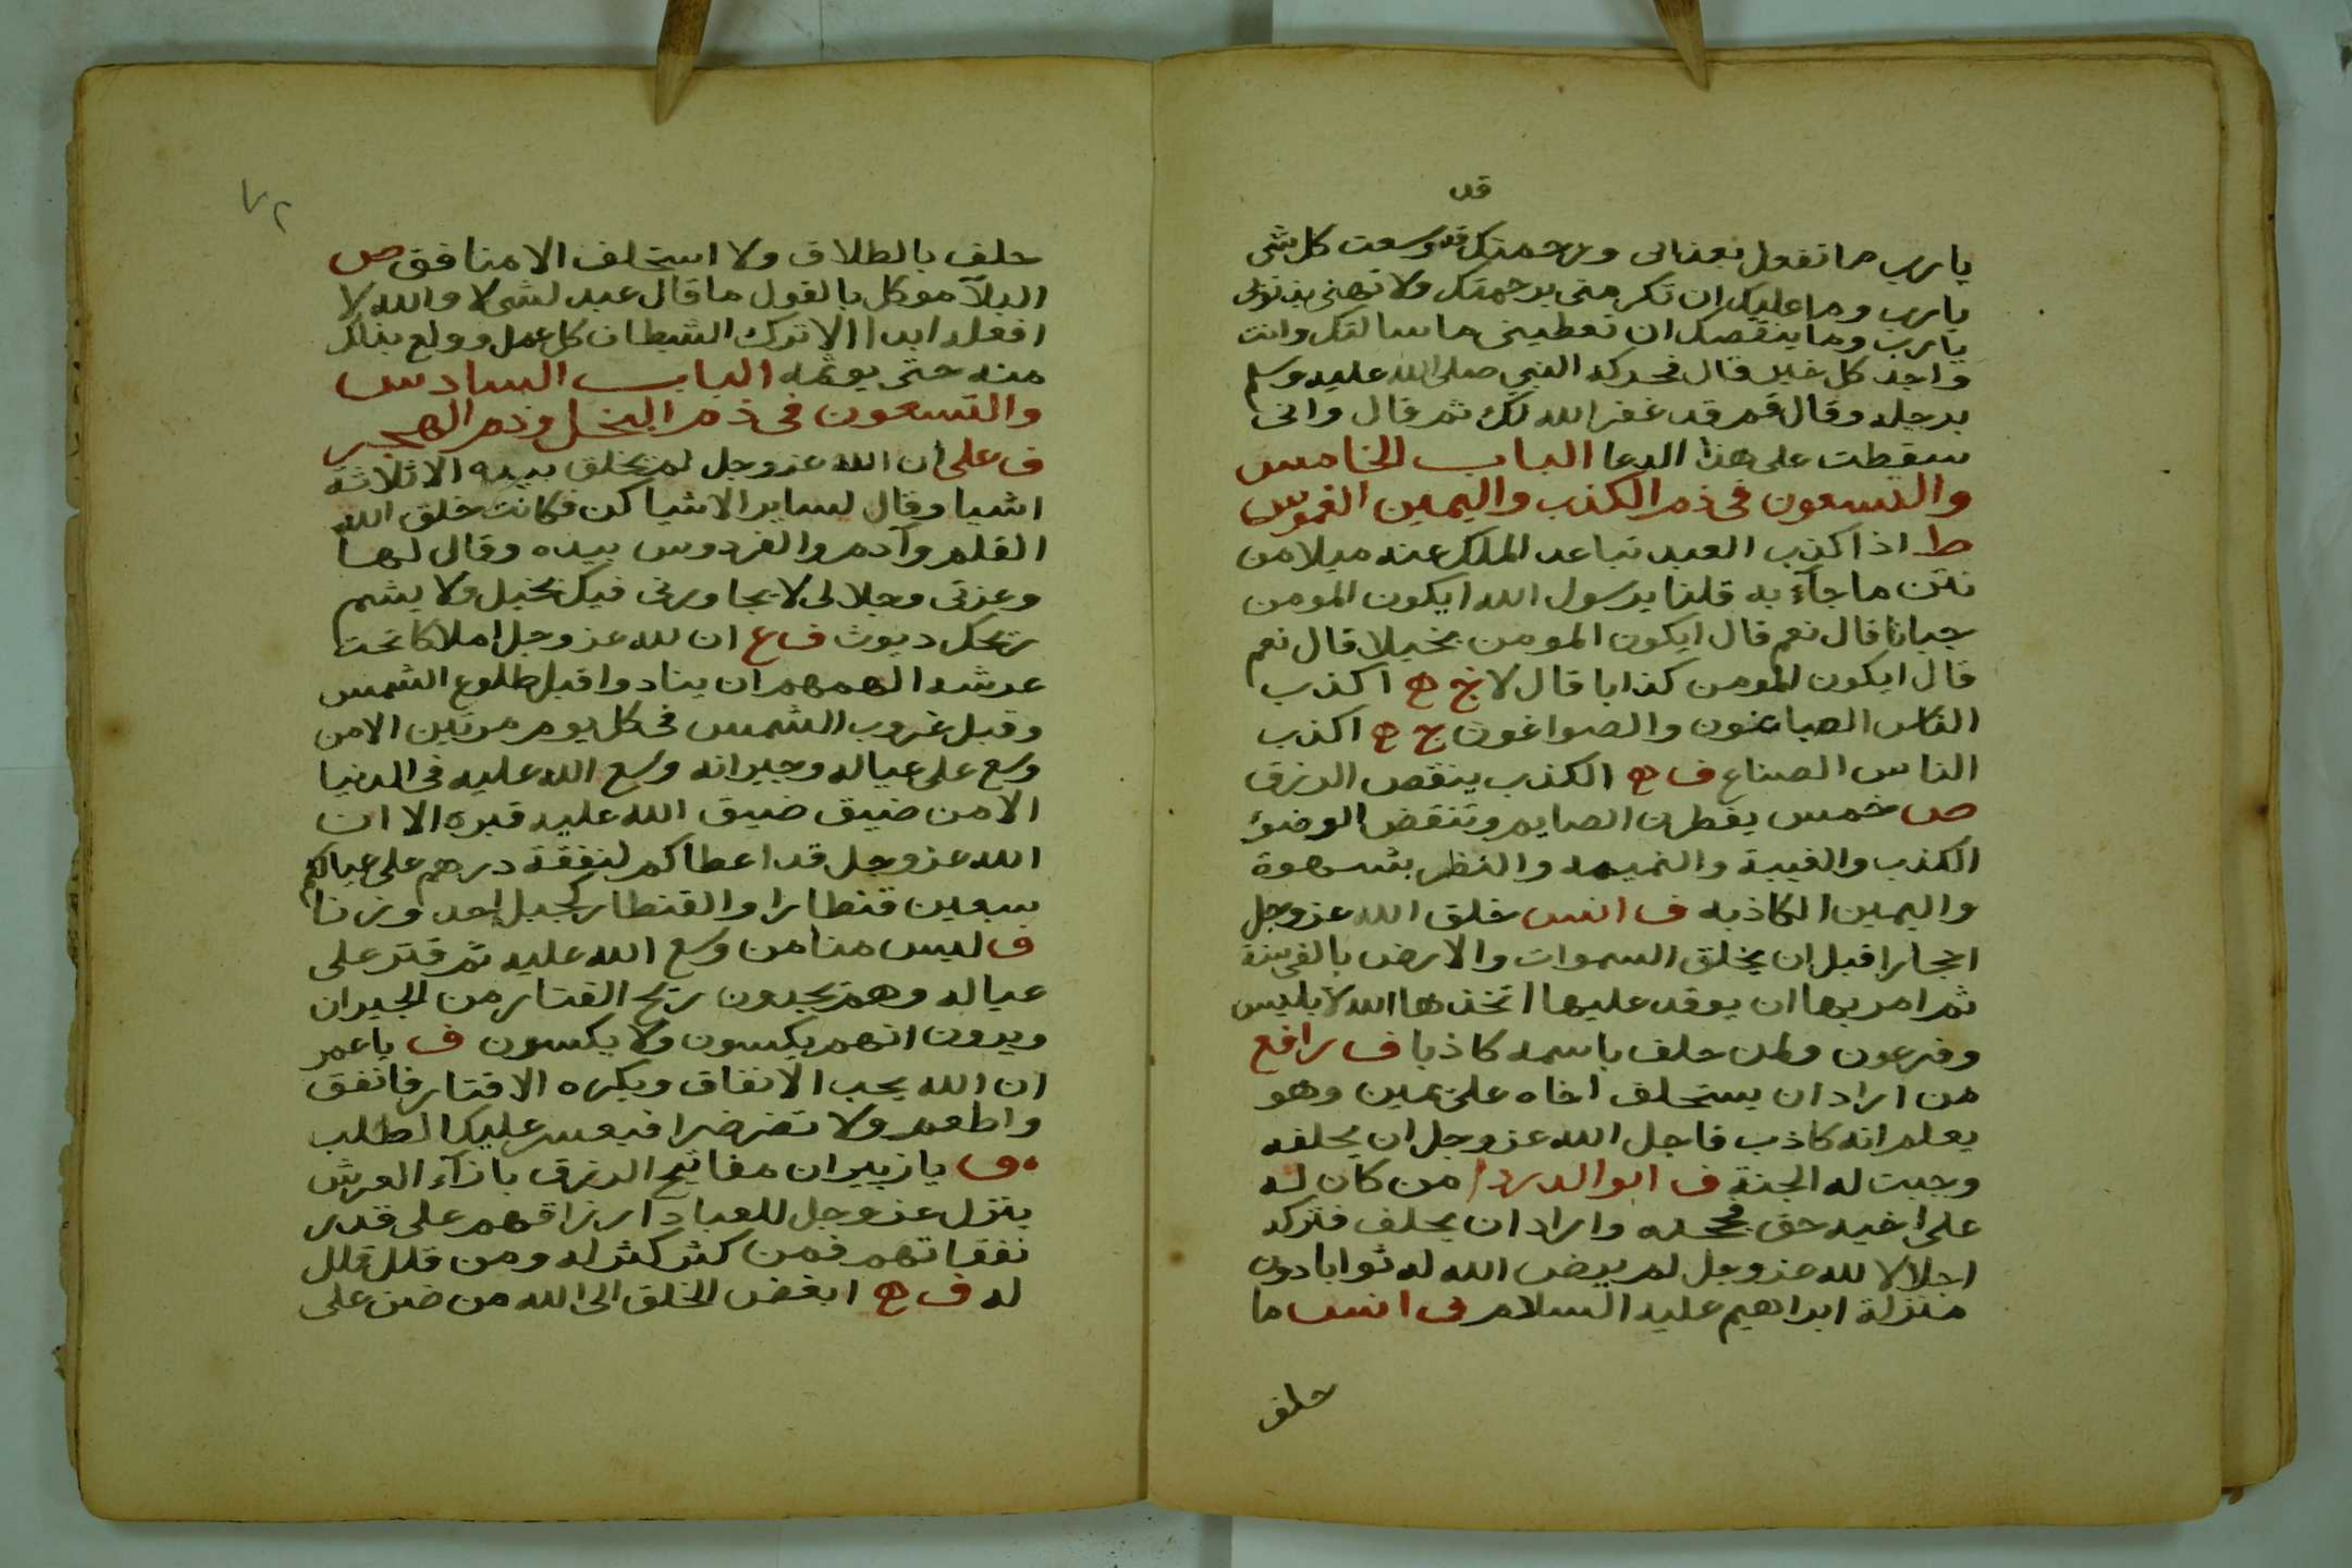 قد
يا رب ما تفعل بعذابى ورحمتك قد وسعت كل شى
يا رب وما عليك ان تكرمنى برحمتك ولا تهنى بذنوبى
يا رب وما ينقصك ان تعطينى ما سالتك وانت
واجد كل خير قال فحركه النبي صلى الله عليه وسلم
برجله وقال قم قد غفر الله لك ثم قال وانى
سقطت على هذا الدعا الباب الخامس
والتسعون فى ذم الكذب واليمين الغموس
ط اذا كذب العبد تباعد الملك عنه ميلا من
نتن ما جآء به قلنا يرسول الله ايكون المومن
جبانا قال نعم قال ايكون المومن بخيلا قال نعم
قال ايكون المومن كذابا قال لا خ ه اكذب
الناس الصباغون والصواغون ج ه اكذب
الناس الصناع ف ه الكذب ينقص الرزق
ص خمس يفطرن الصايم وتنقض الوضؤ
الكذب والغيبة والنميمه والنظر بشهوة
واليمين الكاذبه ف انس خلق الله عز وجل
احجارا قبل ان يخلق السموات والارض بالفى سنة
ثم امر بها ان يوقد عليها اتخذها الله لابليس
وفرعون ولمن حلف باسمه كاذبا ف رافع
من اراد ان يستحلف اخاه على يمين وهو
يعلم انه كاذب فاجل الله عز وجل ان يحلفه
وجبت له الجنة ف ابو الدردا من كان له
على اخيه حق فجحده واراد ان يحلف فتركه
اجلالا لله عز وجل لم يرض الله له ثوابا دون
منزلة ابراهيم عليه السلام ف انس ما
حلف
٧٢
حلف بالطلاق ولا استحلف الا منافق ص
البلآ موكل بالقول ما قال عبد لشى لا والله لا
افعله ابدا الا ترك الشيطان كل عمل وولع بذلك
منه حتى يوثمه الباب السادس
والتسعون فى ذم البخل وذم الهجر
ف على ان الله عز وجل لم يخلق بيده الا ثلاثة
اشيا وقال لساير الاشيا كن فكانت خلق الله
القلم وآدم والفردوس بيده وقال لها
وعزتى وجلالى لا يجاورنى فيك بخيل ولا يشم
ريحك ديوث ف ع ان لله عز وجل املاكا تحت
عرشه الهمهم ان ينادوا قبل طلوع الشمس
وقبل غروب الشمس فى كل يوم مرتين الا من
وسع على عياله وجيرانه وسع الله عليه فى الدنيا
الا من ضيق ضيق الله عليه قبره الا ان
الله عز وجل قد اعطاكم لنفقة درهم على عيالكم
سبعين قنطارا والقنطار كجبل احد وزنا
ف ليس منا من وسع الله عليه ثم قتر على
عياله وهم يجدون ريح القتار من الجيران
ويرون انهم يكسون ولا يكسون ف يا عمر
ان الله يحب الانفاق ويكره الاقتار فانفق
واطعم ولا فيعسر عليك الطلب
ف يا زبير ان مفاتيح الرزق بازآء العرش
ينزل عز وجل للعباد ارزاقهم على قدر
نفقاتهم فمن كثر كثر له ومن قلل قلل
له ف ه ابغض الخلق الى الله من ضن على